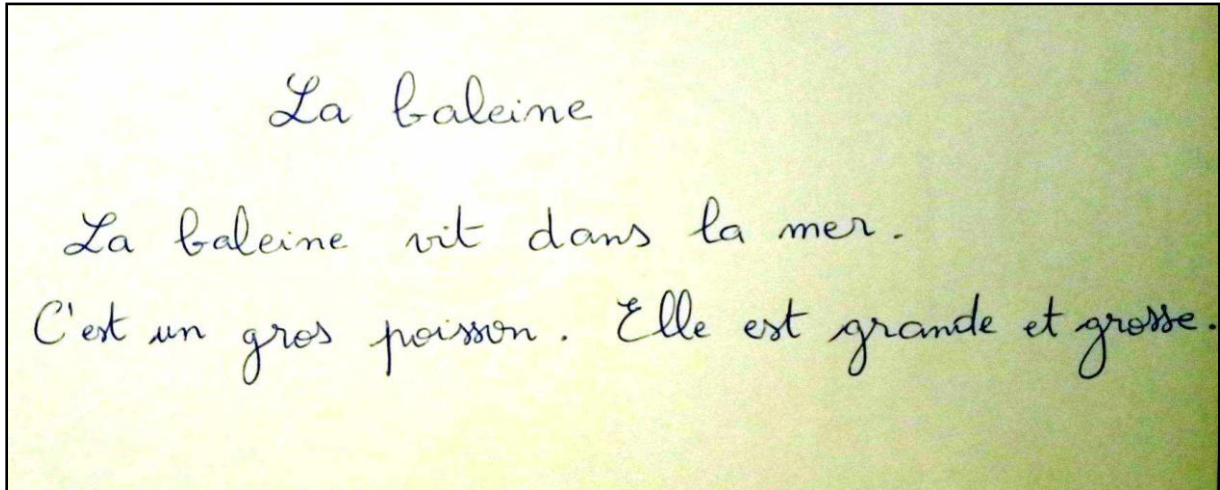 La baleine
La baleine vit dans la mer.
C'est un gros poisson. Elle est grande et grosse.